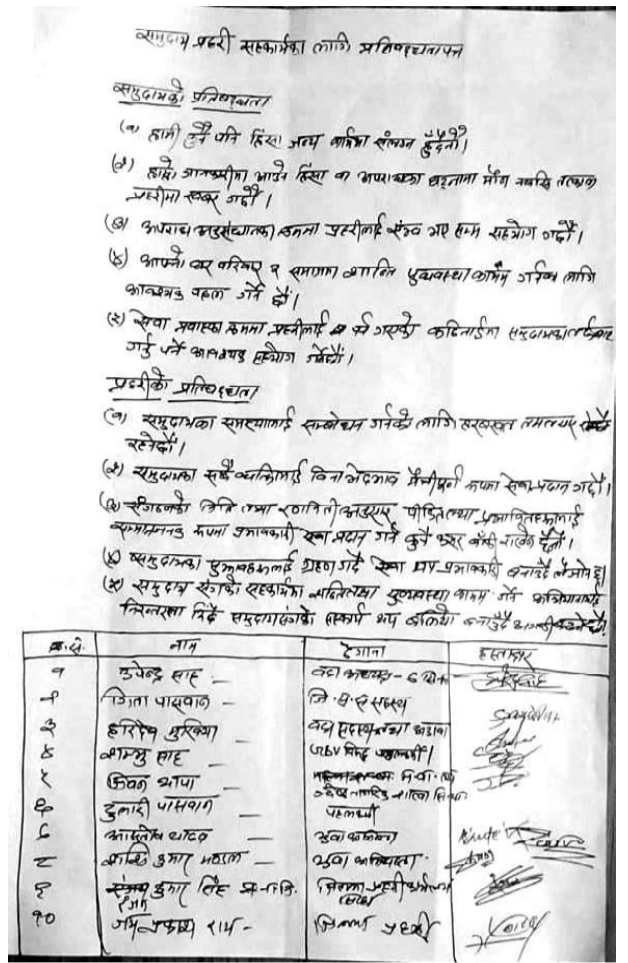 समुदाय प्रहरी सहकार्यका लागि प्रतिबद्धतापत्र
समुदायको प्रतिबद्धता
(१) हामी कुनै पनि हिंसा जन्य कार्यमा संलग्न हुँदैनौं।
(२) हाम्रो जानकारीमा आउने हिंसा वा अपराधका घटनामा मौन नबसि तत्काल
प्रहरीमा खबर गर्दौं।
(३) अपराध अनुसंधानका क्रममा प्रहरीलाई संभव भए सम्म सहयोग गर्दौं।
(४) आफ्नो घर परिवार र समाजमा शान्ति सुव्यवस्था कायम गर्नका लागि
आवश्यक पहल गर्ने छौं।
(५) सेवा प्रवाहका क्रममा प्रहरीलाई पर्न गएको कठिनाईमा समुदायका तर्फबाट
गर्नु पर्ने आवश्यक सहयोग गर्नेछौं।
प्रहरीको प्रतिबद्धता
(१) समुदायका समस्यालाई सम्बोधन गर्नको लागि हरबखत तमतयार
रहनेछौं।
(२) समुदायका सबै व्यक्तिलाई विना भेदभाव मैत्रीपूर्ण रूपमा सेवा प्रदान गर्दौं।
(३) संगठनको निति तथा रणनिती अनुसार पीडित तथा प्रभावितहरूलाई
सम्मानजनक रूपमा प्रभावकारी सेवा प्रदान गर्न कुनै कसर बाँकी राख्ने छैनौं।
(४) समुदायका सुझावहरूलाई ग्रहण गर्दै सेवा थप प्रभावकारी बनाउँदै लैजानेछौं।
(५) समुदाय संगको सहकार्यमा शान्ति तथा सुव्यवस्था कायम गर्ने अभियानलाई
निरन्तरता दिँदै समुदायसंगको सहकार्य थप बलियो बनाउँदै
क्र.सं. नाम ठेगाना हस्ताक्षर
१ उपेन्द्र साह - वडा अध्यक्ष - ६
२ गिता पासवान - जि.स.स सदस्य
३ हरिदेव मुखिया - वडा सदस्य
४ शम्भु साह -
५ जिवन थापा
६ दुलारी पासवान -
७ आशुतोष यादव -
८ कुमार मण्डल -
९ कुमार सिंह प्र.ना.उ. जिल्ला प्रहरी कार्यालय
१० जय प्रकाश राय - जिल्ला प्रहरी